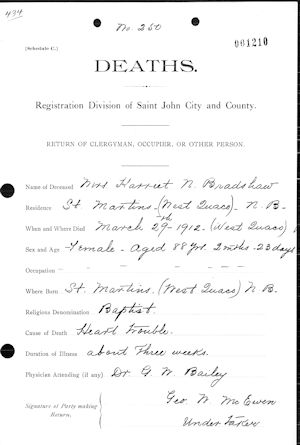 434
No. 250
(Schedule C.)
001210
DEATHS.
Registration Division of Saint John City and County.
RETURN OF CLERGYMAN, OCCUPIER, OR OTHER PERSON.
Name of Deceased Mrs Harriet N. Bradshaw
Residence St. Martins - (West Quaco) - N. B -
When and Where Died March 29th - 1912. (West Quaco)
Sex and Age Female - Aged 88 yrs. 2 mths. 23 days
Occupation -
Where Born St. Martins. (West Quaco) N. B
Religious Denomination Baptist.
Cause of Death Heart trouble.
Duration of Illness about Three weeks.
Physician Attending (if any) Dr G. W. Bailey
Signature of Party making Return, Geo. W. McEwen
Under Taker